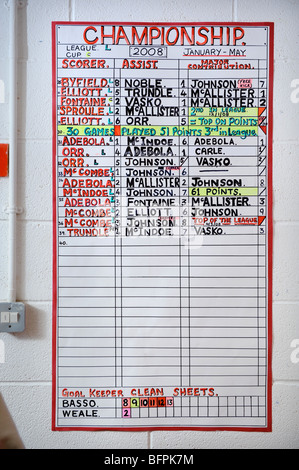 CHAMPIONSHIP.
LEAGUE L
CUP C
2008
JANUARY - MAY
SCORER. ASSIST. MAJOR CONTRIBUTION.
BYFIELD 8 NOBLE. JOHNSON
ELLIOTT. TRUNDLE. 4 McALLISTER
FONTAINE VASKO McALLISTER
SPROULE McALLISTER 2ND IN LEAGUE
ELLIOTT. 6 ORR. = TOP ON POINTS
30 GAMES PLAYED 51 POINTS 3rd in League
ADEBOLA McINDOE. 6 ADEBOLA.
ORR. ADEBOLA. CARLE.
ORR. JOHNSON. VASKO.
McCOMBE JOHNSON.
ADEBOLA McALLISTER JOHNSON.
McINDOE JOHNSON. 7 61 POINTS.
ADEBOLA FONTAINE 3 McALLISTER
McCOMBE ELLIOTT JOHNSON. 9
McCOMBE JOHNSON 8 TOP OF THE LEAGUE
TRUNDLE McINDOE. VASKO. 3
40.
GOAL KEEPER CLEAN SHEETS.
BASSO. 8 9 10 11 12 13
WEALE. 2
alamy
Image ID: BFPK7M
www.alamy.com